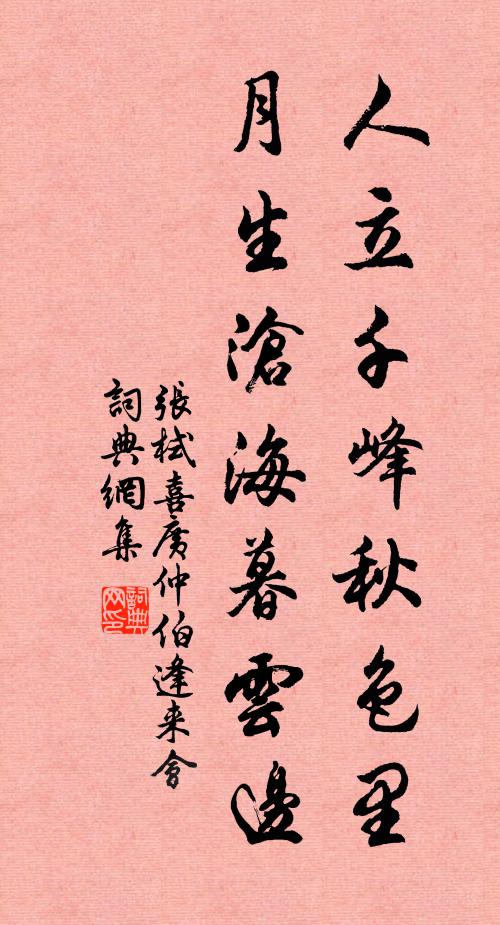 人立千峰秋色里
月生滄海暮雲邊
張栻喜廣仲伯逢来會
詞典網集
詞典网印